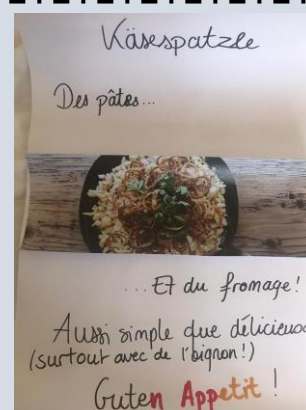 Käsespatzle
Des pâtes...
...Et du fromage!
Aussi simple que délicieuse
(surtout avec de l'oignon!)
Guten Appetit!